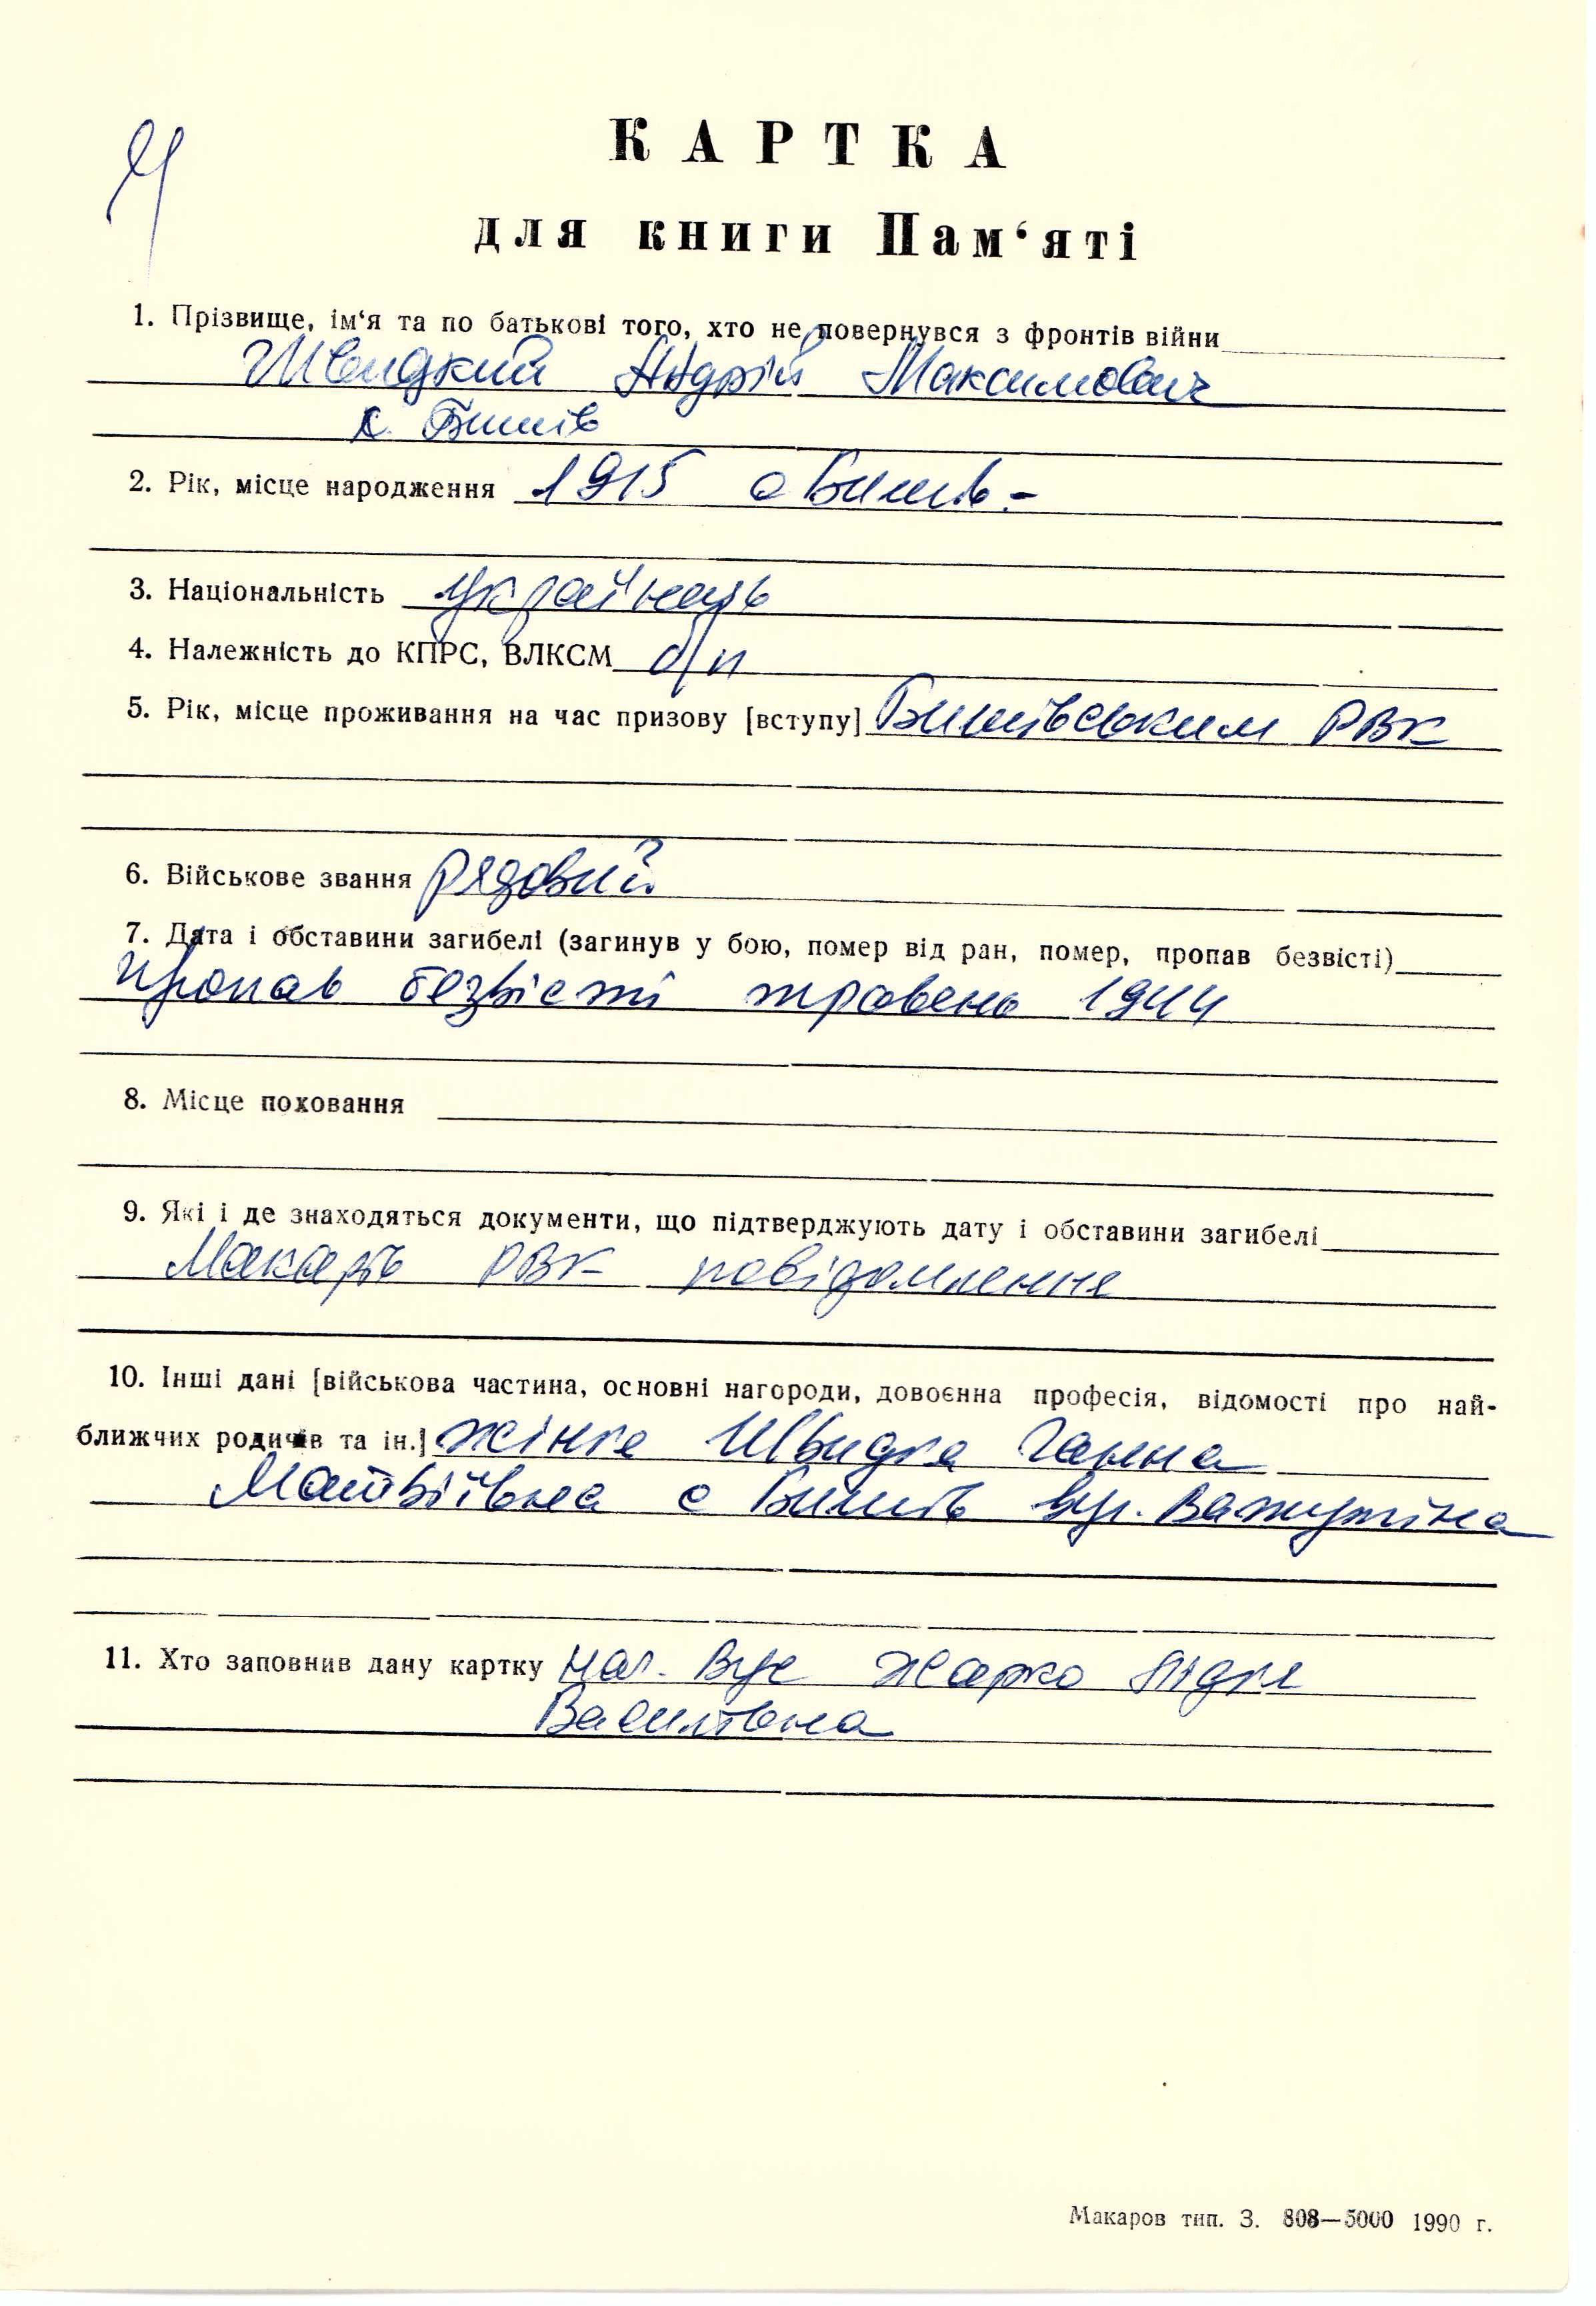 КАРТКА
для книги Пам‘яті
1. Прізвище, ім‘я та по батькові того, хто не повернувся з фронтів війни
Швидкий Андрій Максимович
с. Бишів
2. Рік, місце народження 1915 с Бишів.-
3. Національність українець
4. Належність до КПРС, ВЛКСМ б/п
5. Рік, місце проживання на час призову [вступу] Бишівським РВК
6. Військове звання рядовий
7. Дата і обставини загибелі (загинув у бою, помер від ран, помер, пропав безвісті)
пропав безвісті травень 1944
8. Місце поховання
9. Які і де знаходяться документи, що підтверджують дату і обставини загибелі
РВК повідомлення
10. Інші дані [військова частина, основні нагороди, довоєнна професія, відомості про най-
ближчих родичів та ін.] жінка Швидка Ганна
Матвіївна с Бишів вул. Ватутіна
11. Хто заповнив дану картку нач. вус Жарко
Василівна
Макаров тип. З. 808—5000 1990 г.